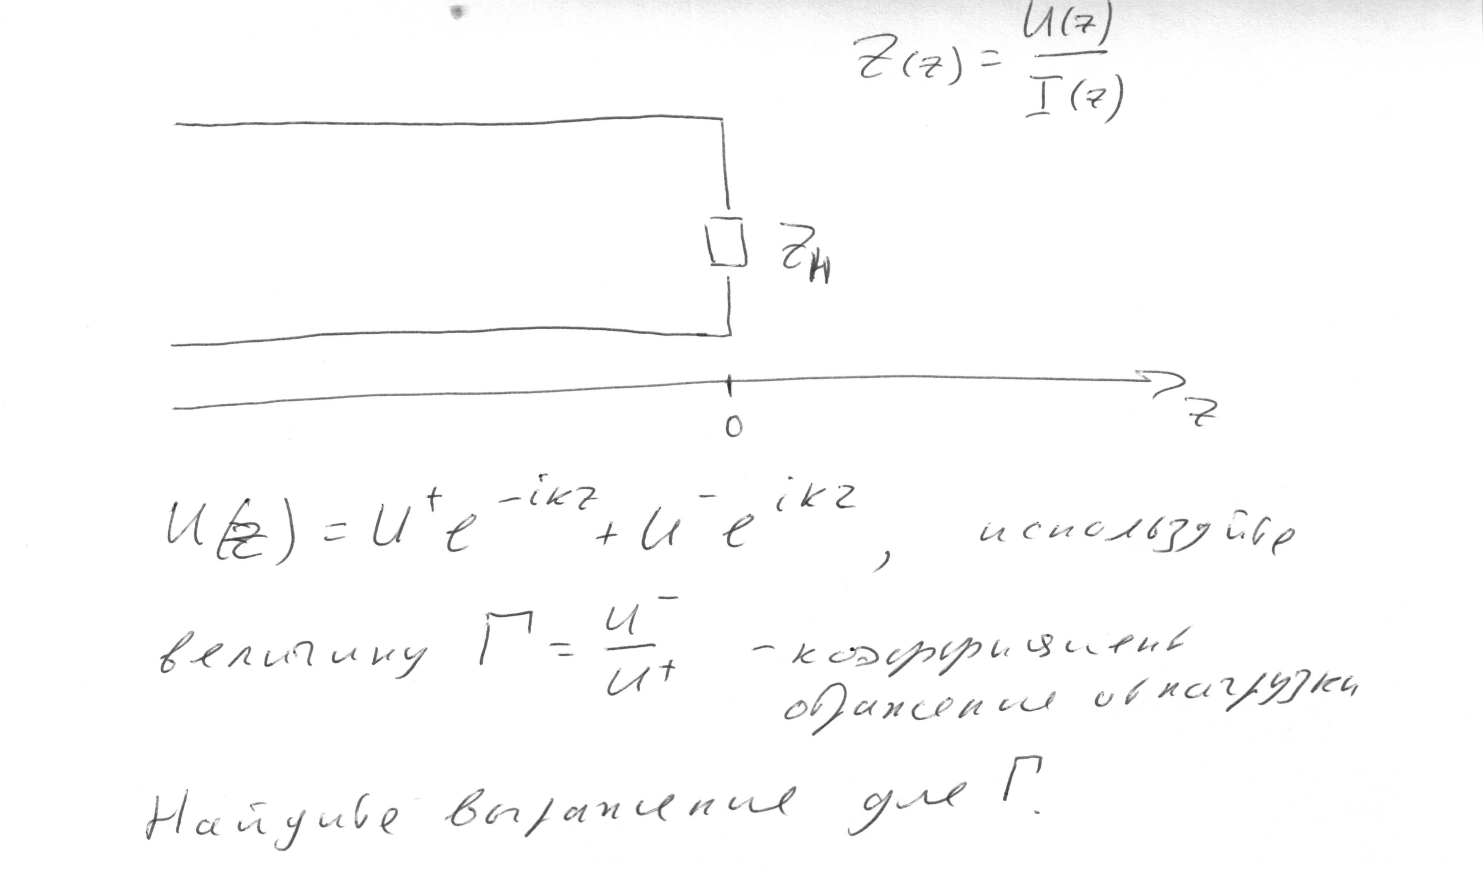 Z(z) = U(z) / I(z)
Zн
0
z
U(z) = U⁺e^{-ikz} + U⁻e^{ikz}, используйте
величину Γ = U⁻ / U⁺ - коэффициент
отражения от нагрузки
Найдите выражение для Γ.